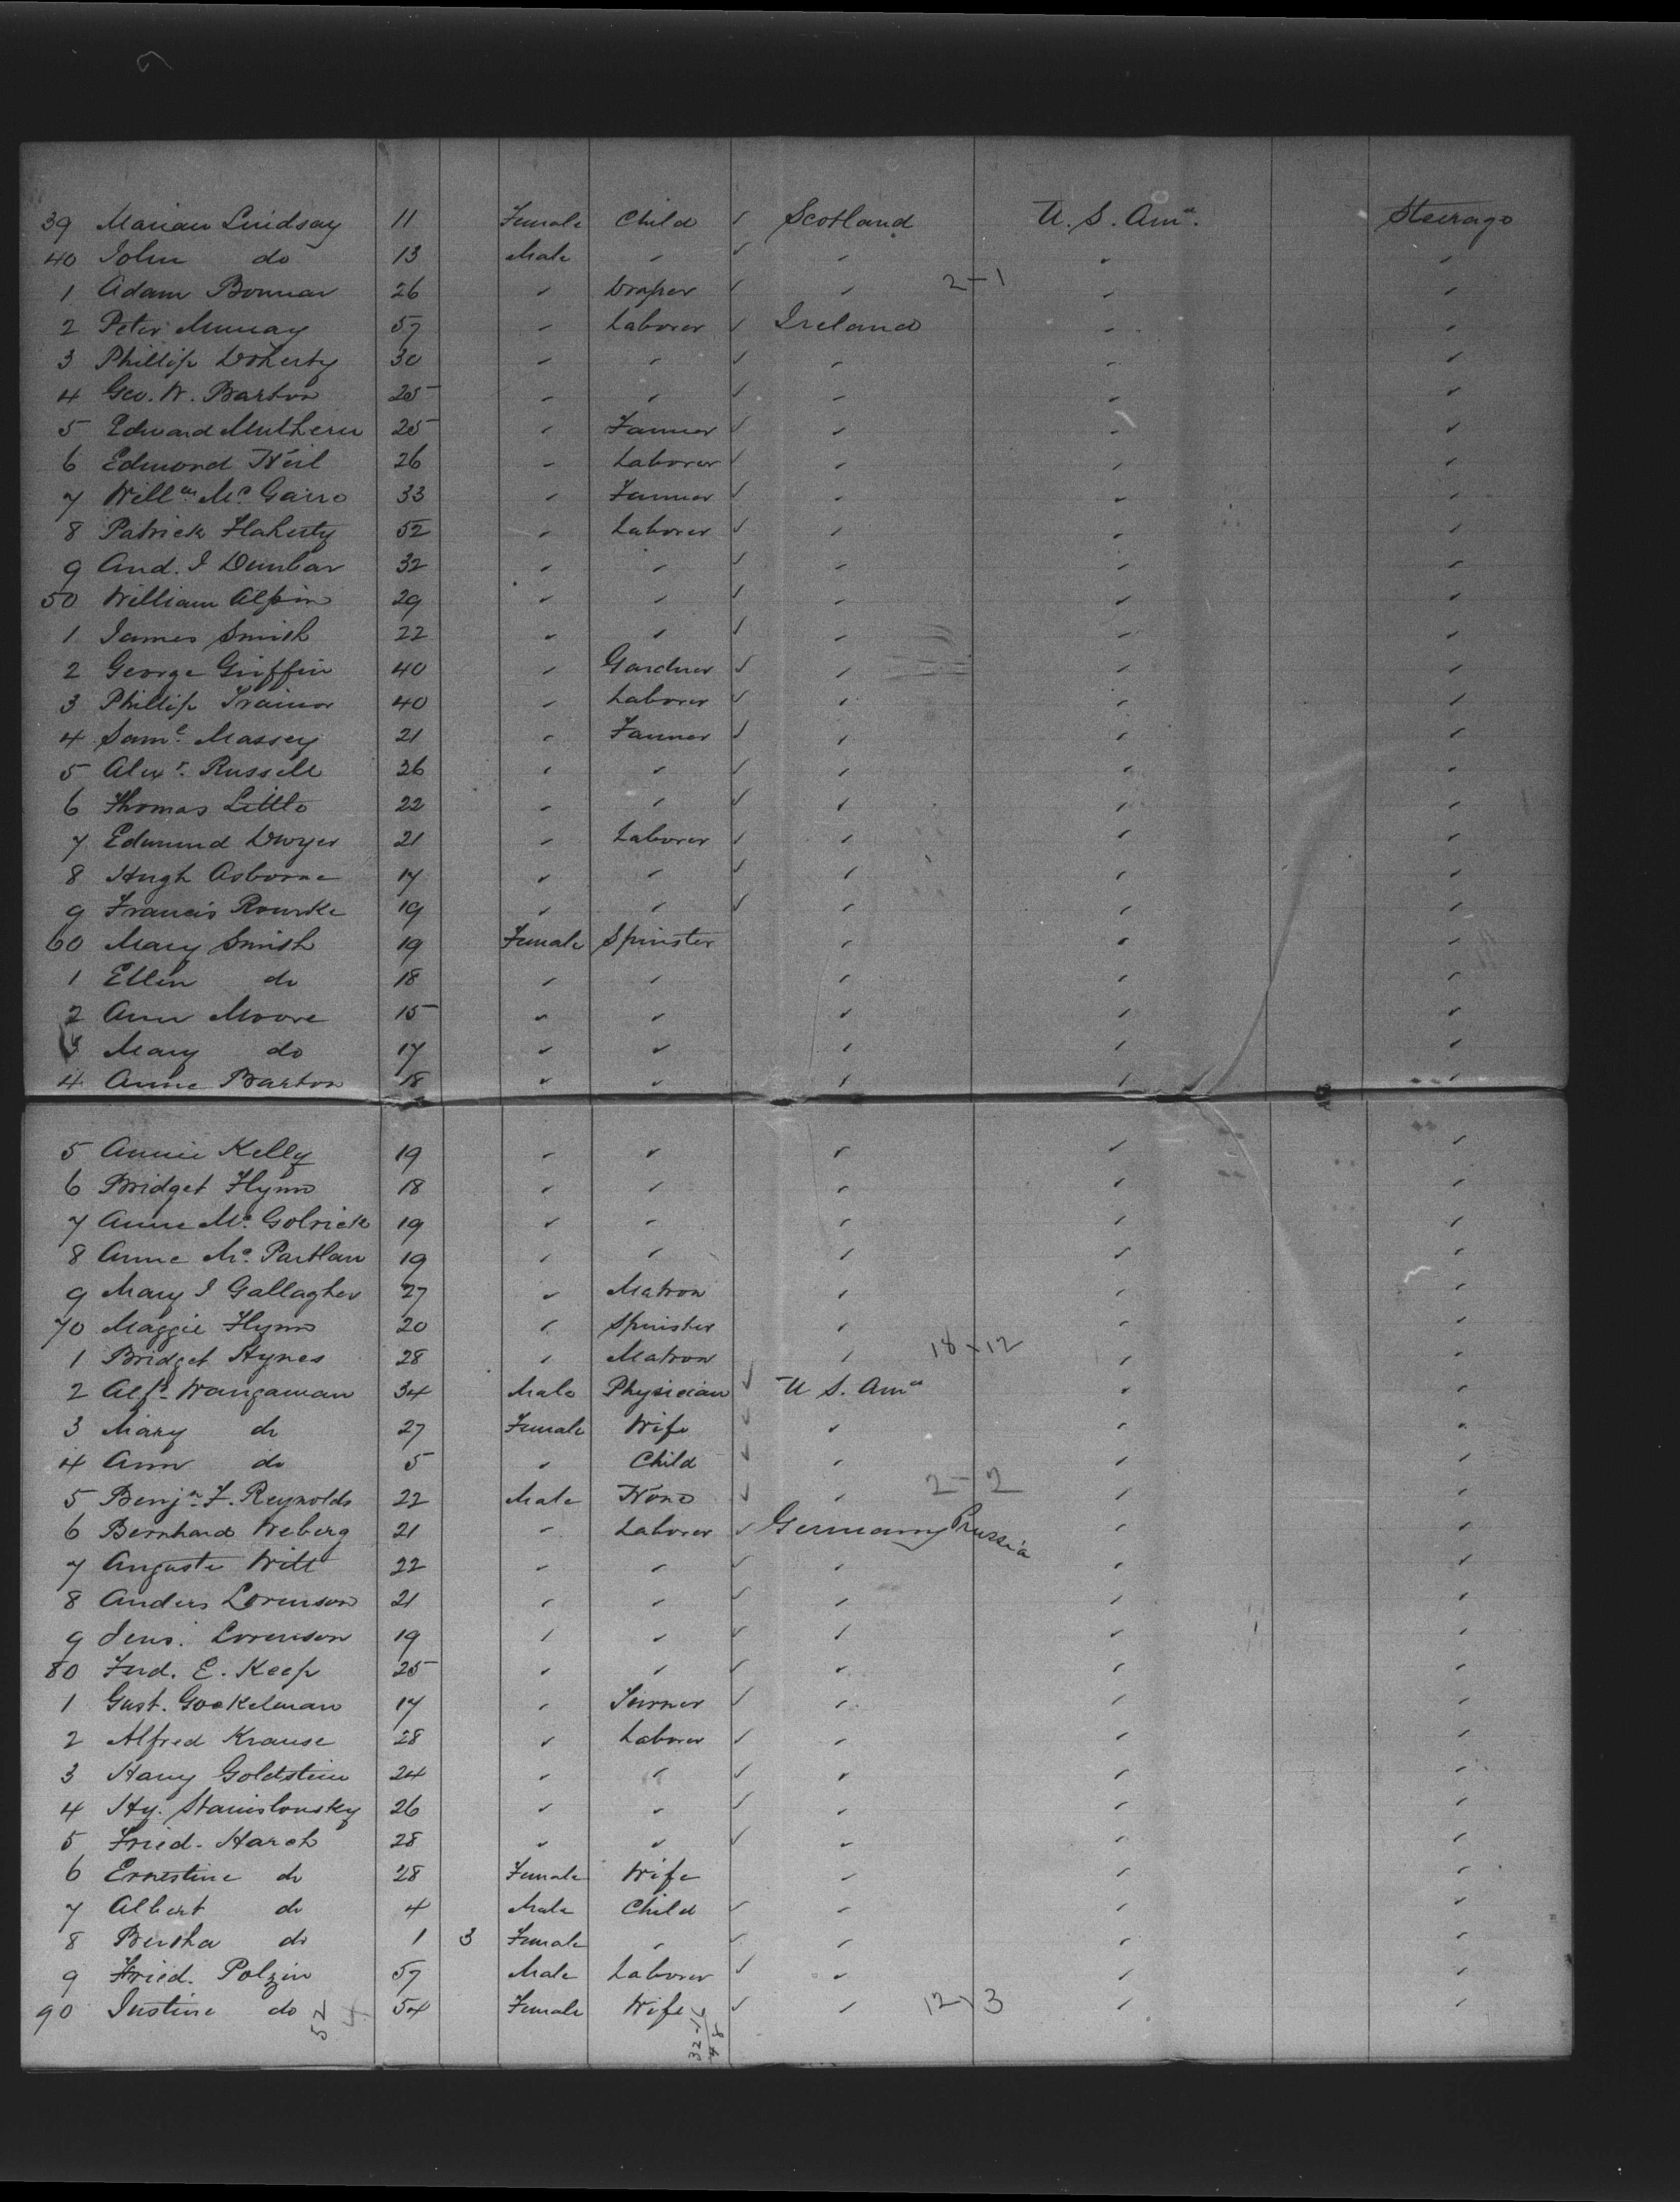 39 Marian Lindsay 11 Female Child ✓ Scotland U. S. Amª. Steerage
40 John do 13 Male " ✓ " " "
1 Adam Bonnar 26 " Draper ✓ " 2-1 " "
2 Peter Murray 57 " Laborer ✓ Ireland " "
3 Phillip Doherty 30 " " ✓ " " "
4 Geo. W. Barton 25 " " ✓ " " "
5 Edward Mulhern 25 " Farmer ✓ " " "
6 Edmond Neil 26 " Laborer ✓ " " "
7 Willᵐ Mc 33 " Farmer ✓ " " "
8 Patrick Flaherty 52 " Laborer ✓ " " "
9 And. J Dunbar 32 " " ✓ " " "
50 William Alpin 29 " " ✓ " " "
1 James Smith 22 " " ✓ " " "
2 George Griffin 40 " Gardner ✓ " " "
3 Phillip Trainor 40 " Laborer ✓ " " "
4 Samˡ. Massey 21 " Farmer ✓ " " "
5 Alexʳ. Russell 36 " " ✓ " " "
6 Thomas Little 22 " " ✓ " " "
7 Edmund Dwyer 21 " Laborer ✓ " " "
8 Hugh Osborne 17 " " ✓ " " "
9 Francis Rourke 19 " " ✓ " " "
60 Mary Smith 19 Female Spinster " " "
1 Ellen do 18 " " " " "
2 Ann Moore 15 " " " " "
3 Mary do 17 " " " " "
4 Anne Barton 18 " " " " "
5 Annie Kelly 19 " " " " "
6 Bridget Flynn 18 " " " " "
7 Anne Mc. Golrick 19 " " " " "
8 Anne Mc. Partlan 19 " " " " "
9 Mary J Gallagher 27 " Matron " " "
70 Maggie Flynn 20 " Spinster " " "
1 Bridget Hynes 28 " Matron " 18-12 " "
2 Wangaman 34 Male Physician ✓ U S. Amª " "
3 Mary do 27 Female Wife ✓ " " "
4 Ann do 5 " Child ✓ " " "
5 Benjⁿ. F. Reynolds 22 Male None ✓ " 2-2 " "
6 Bernhard Weberg 21 " Laborer ✓ Germany Prussia " "
7 Auguste Witt 22 " " ✓ " " "
8 Anders Lorenson 21 " " ✓ " " "
9 Jens. Lorenson 19 " " ✓ " " "
80 Ferd. E. Keep 25 " " ✓ " " "
1 Gust. Gockelman 17 " Turner ✓ " " "
2 Alfred Krause 28 " Laborer ✓ " " "
3 Harry Goldstein 24 " " ✓ " " "
4 Hy. Stanislousky 26 " " ✓ " " "
5 Fried. Harch 28 " " ✓ " " "
6 Ernestine do 28 Female Wife " " "
7 Albert do 4 Male Child ✓ " " "
8 Bertha do 1 3 Female " ✓ " " "
9 Fried. Polzin 57 Male Laborer ✓ " " "
90 Justine do 54 Female Wife ✓ " 12-3 " "
52 4
32-16
48